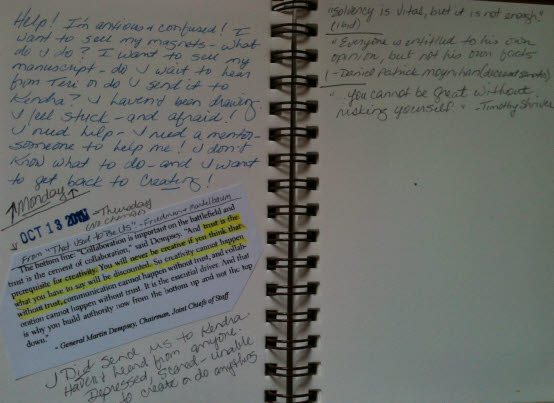 Help! I'm anxious & confused! I
want to sell my magnets - what
do I do? I want to sell my
manuscript - do I wait to hear
from Teri or do I send it to
Kendra? I haven't been drawing.
I feel stuck - and afraid!
I need help - I need a mentor -
someone to help me! I don't
know what to do - and I want
to get back to creating!
↑Monday↑
↓ OCT 13 - Thursday
From "That Used to Be Us" - Friedman & Mandelbaum
The bottom line: "Collaboration is important on the battlefield and
trust is the cement of collaboration," said Dempsey. "And trust is the
prerequisite for creativity. You will never be creative if you think that
what you have to say will be discounted. So creativity cannot happen
without trust, communication cannot happen without trust, and collab-
oration cannot happen without trust. It is the essential driver. And that
is why you build authority now from the bottom up and not the top
down."
- General Martin Dempsey, Chairman, Joint Chiefs of Staff
I Did send MS to Kendra.
Haven't heard from anyone.
Depressed, Scared - unable
to create or do anything
"Solvency is vital, but it is not enough"
(ibid)
"Everyone is entitled to his own
opinion, but not his own facts"
- Daniel Patrick Moynihan (deceased senator)
"you cannot be great without
risking yourself." - Timothy Shriver